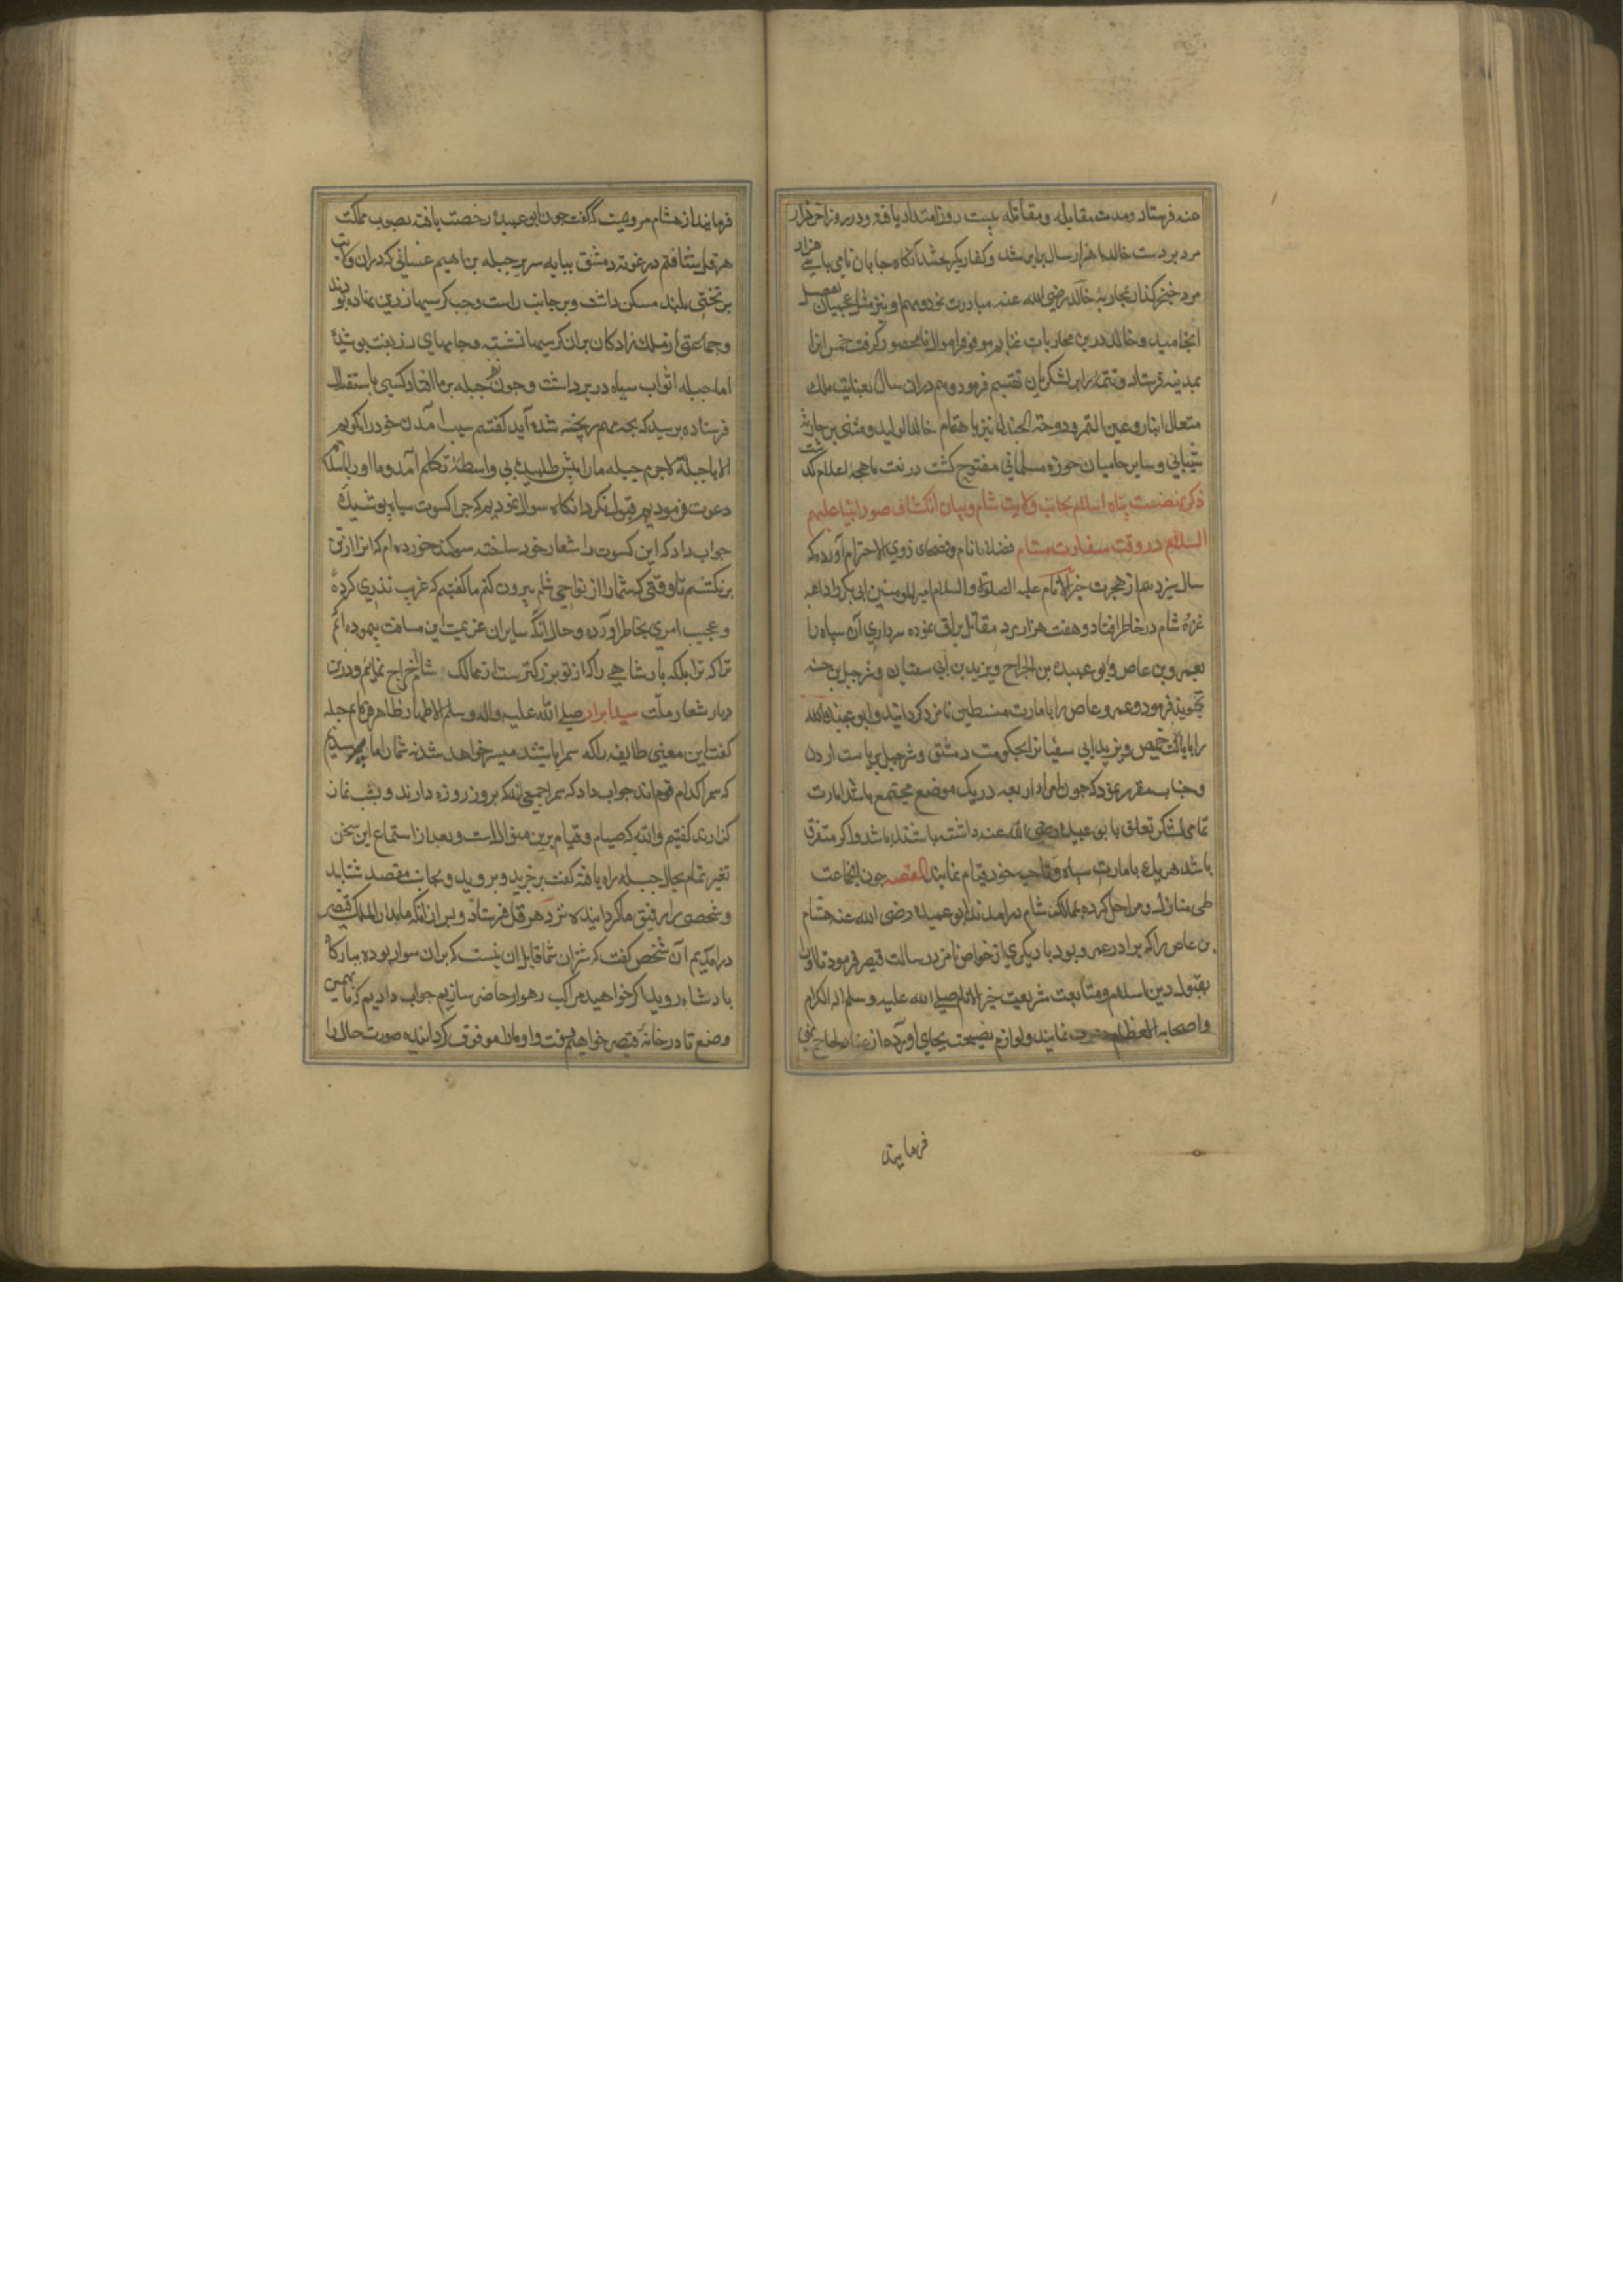 عنه فرستاد ومدت مقابله ومقاتله بیست روز امتداد یافته ودر روز آخر هزار
مرد بر دست خالد با هزار سال برابر شد وکفار یکر آنکاه جابان نامی با سی هزار
مرد خنجر کذار بمحاربهٔ خالد رضی الله عنه مبادرت نموده مهم او نیز
انجامید وخالد درین محاربات غنایم موفور اموال نامحصور کرفت خمس انرا
بمدینه فرستاد وتتمه را بر لشکریان تقسیم فرمود وهم دران سال بعنایت ملک
متعال انبار وعین التمر ودومة الجندل نیز باهتمام خالد الولید ومثنی بن حارثه
شیبانی وسایر حامیان حوزه مسلمانی مفتوح کشت
ذکر نهضت سپاه اسلام بجانب ولایت شام وبیان انکشاف صور انبیا علیهم
السلام در وقت سفارت هشام فضلاء انام وفصحای ذوی الاحترام آورده‌اند که
سال سیزدهم از هجرت خیر الانام علیه الصلوة والسلام امیر المومنین ابی بکر را داعیه
غزوهٔ شام در خاطر افتاد وهفت هزار مرد مقاتل یراق نموده سرداری آن سپاه را
بعمرو بن عاص وابو عبیده بن الجراح ویزید بن ابی سفیان وشرجیل بن حسنه
تجویز فرمود وعمرو عاص را بامارت فلسطین نامزد کردانید وابو عبیده
را بایالت حمص ویزید ابی سفیانرا بحکومت دمشق وشرجیل بریاست اردن
وچنان مقرر نمود که چون امراء اربعه در یک موضع مجتمع باشند امارت
تمامی لشکر تعلق بابو عبیده رضی الله عنه داشته باشد واکر متفرق
باشند هریک بامارت سپاه خود قیام نمایند القصه چون انجماعت
طی منازل ومراحل کرده بممالک شام درامدند ابو عبیده رضی الله عنه هشام
بن عاص را که برادر عمرو بود با دیکری از خواص نامزد رسالت قیصر فرمود تا اورا
بقبول دین اسلام ومتابعت شریعت خیر الانام صلی الله علیه وسلم اله الکرام
واصحابه العظام نمایند ولوازم نصیحت بجای اورده از
فرمایند
فرمایند از هشام مرویست که گفت چون از ابو عبیده رخصت یافته بصوب مملکت
هرقل شتافتم در غوطهٔ دمشق بپایه سریر جبله بن ایهم غسانی که دران ولایت
بر تختی بلند مسکن داشت وبر جانب راست وچپ کرسیها زرین نهاده بودند
وجماعتی از ملک زادکان بران کرسیها نشسته وجامهای زربفت پوشیده
اما جبله اثواب سیاه در بر داشت وچون نظر جبله بر ما افتاد کسی باستقبال
فرستاده پرسید که بجه مهم رنجه شده آید کفتیم سبب آمدن خود را نکویم
الا با جبله لاجرم جبله مارا پیش طلبید بی واسطه تکلم آمد وما اورا باسلام
دعوت فرمودیم قبول نکرد انکاه سوال نمودیم که چرا کسوت سیاه پوشیده
جواب داد که این کسوت را شعار خود ساخته سوکند خورده‌ام که انرا از تن
بر نکشم تا وقتی که شمارا از نواحی شام بیرون کنم ما کفتیم که غریب نذری کرده
وعجیب امری بخاطر اورده وحال انکه سایران عزیمت این مسافت پیموده‌ایم
تا که ترا بلکه پادشاهی را که از تو بزرکترست از ممالک شام اخراج نمایم ودرین
دیار شعار ملت سید ابرار صلی الله علیه واله وسلم الاطهار ظاهر جبله
کفت این معنی طایفه را که سمرا باشند میسر خواهد شد نه شمارا ما پرسیدیم
که سمرا کدام قوم‌اند جواب داد که سمرا جمعی‌اند که بروز روزه دارند وبشب نماز
کذارند کفتیم والله که صیام وقیام برین منوال است وبعد از استماع این سخن
تغیر تمام بحال جبله راه یافته کفت برخیزید وبروید وبجانب مقصد شتابید
وشخصی را رفیق ما کردانیده نزد هرقل فرستاد وپس از انکه ما بدار الملک قیصر
درامدیم آن شخص کفت که شتران شما قابل ان نیست که بران سوار بوده ببارکاه
پادشاه روید اکر خواهید مراکب رهوار حاضر سازیم جواب دادیم که ما بهمین
وضع تا در خانه قیصر خواهیم رفت واو مارا موقوف کردانیده صورت حال را